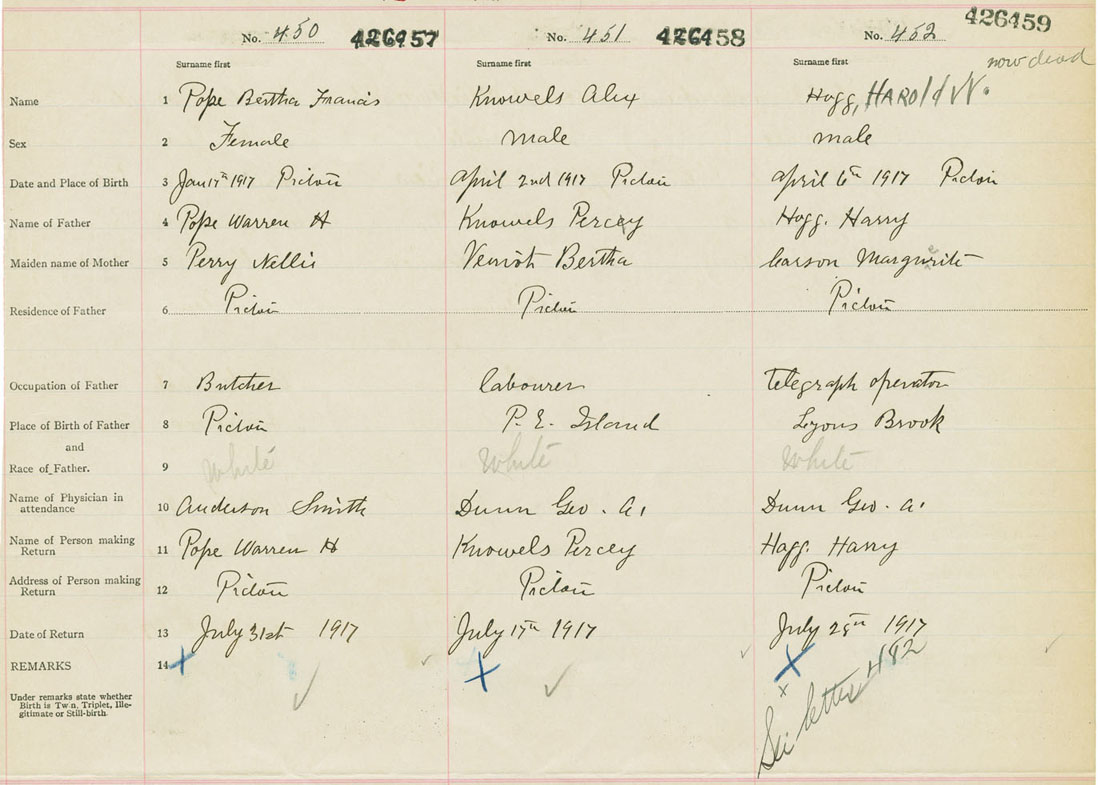 No. 450 426457 No. 451 426458 No. 452 426459
Surname first Surname first Surname first now dead
Name 1 Pope Bertha Francis Knowels Alex Hogg, HAROld W.
Sex 2 Female male male
Date and Place of Birth 3 Jan 17th 1917 Pictou April 2nd 1917 Pictou April 6th 1917 Pictou
Name of Father 4 Pope Warren H Knowels Percey Hogg. Harry
Maiden name of Mother 5 Perry Nellie Veniot Bertha Carson Margurite
Residence of Father 6 Pictou Pictou Pictou
Occupation of Father 7 Butcher labourer telegraph operator
Place of Birth of Father 8 Pictou P. E. Island Lyons Brook
and
Race of Father. 9 White White White
Name of Physician in
attendance 10 Anderson Smith Dunn Geo. A. Dunn Geo. A.
Name of Person making
Return 11 Pope Warren H Knowels Percey Hogg. Harry
Address of Person making
Return 12 Pictou Pictou Pictou
Date of Return 13 July 31st 1917 July 17th 1917 July 28th 1917
REMARKS 14 x x x
Under remarks state whether
Birth is Twin, Triplet, Ille-
gitimate or Still-birth.
x See letter 482